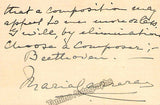 that a composition may
appeal to one more than
I will, by elimination
choose a composer;
Beethoven.